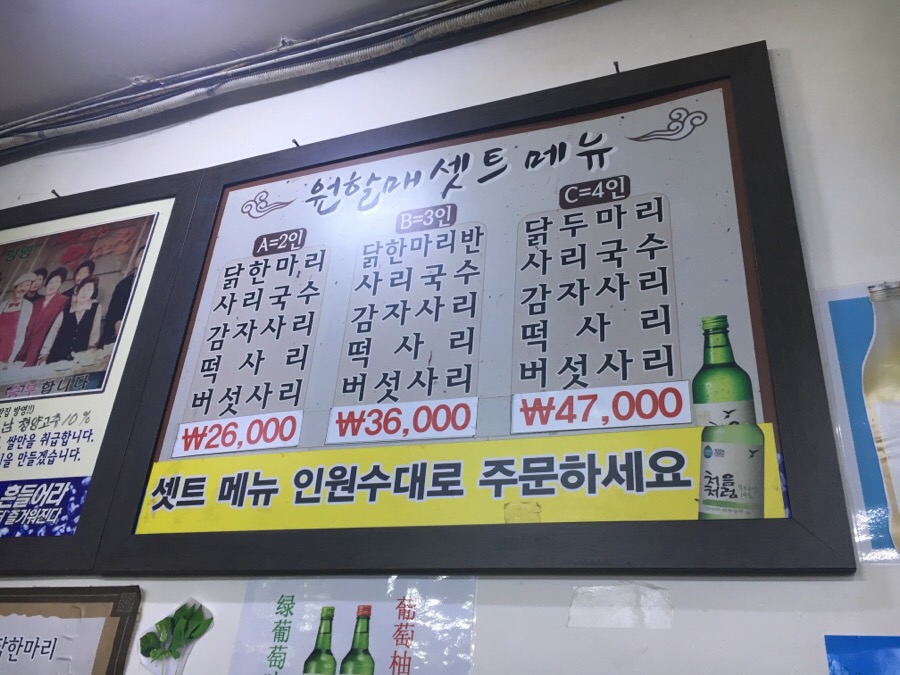 원할매 셋트 메뉴
A=2인
닭한마리
사리국수
감자사리
떡 사 리
버섯사리
₩26,000
B=3인
닭한마리반
사리국수
감자사리
떡 사 리
버섯사리
₩36,000
C=4인
닭두마리
사리국수
감자사리
떡 사 리
버섯사리
₩47,000
셋트 메뉴 인원수대로 주문하세요
처음
처럼
합니다
방영!!)
청양고추 10%
쌀만을 취급합니다.
만들겠습니다.
흔들어라
즐거워진다
닭한마리
绿葡萄
葡萄柚